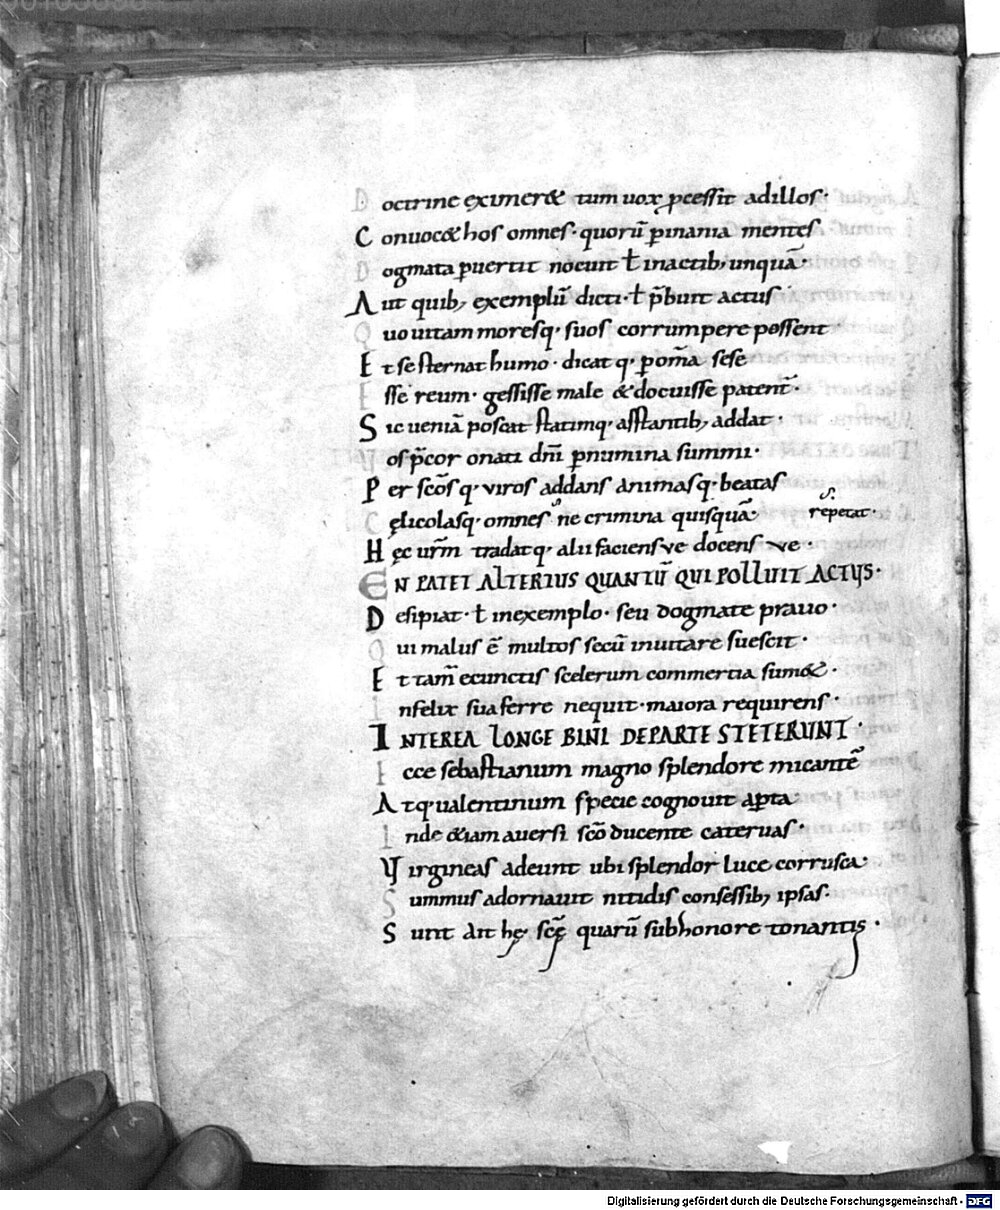 Doctrine eximeret tum uox p̱cessit ad illos·
Conuocet hos omnes· quorū p̱ inania mentes
Dogmata puertit nocuit ƚ in actib; unquā·
Aut quib; exemplū dicti· ƚ p̄buit actus·
Quo uitam moresq· suos corrumpere possent
Et se sternat humo· dicat q· p̱ om̄a sese
Esse reum· gessisse male & docuisse patent̄·
Sic ueniā poscat statimq· asstantib; addat·
Vos p̄cor o nati dn̄i p̱ numina summi·
Per scōs q· viros addans animasq· beatas
Cęlicolasq· omnes· ne crimina quisquā· repetat·
Hęc urm̄ tradatq· alii faciens ve docens ve·
EN PATET ALTERIUS QUANTŪ QUI POLLUIT ACTUS·
Desipiat· ƚ in exemplo· seu dogmate prauo·
Qui malus ē multos secū inuitare suescit·
Et tam̄ e cunctis scelerum commertia sumet·
Infelix sua ferre nequit· maiora requirens·
INTEREA LONGE BINI DE PARTE STETERUNT·
Ecce sebastianum magno splendore micantē
Atq· ualentinum specie cognouit aperta
Inde etiam auersi scō ducente cateruas·
Virgineas adeunt ubi splendor luce corrusca·
Summus adornauit nitidis consessib; ipsas·
Sunt ait hę scę quarū sub honore tonantis·
Digitalisierung gefördert durch die Deutsche Forschungsgemeinschaft - DFG